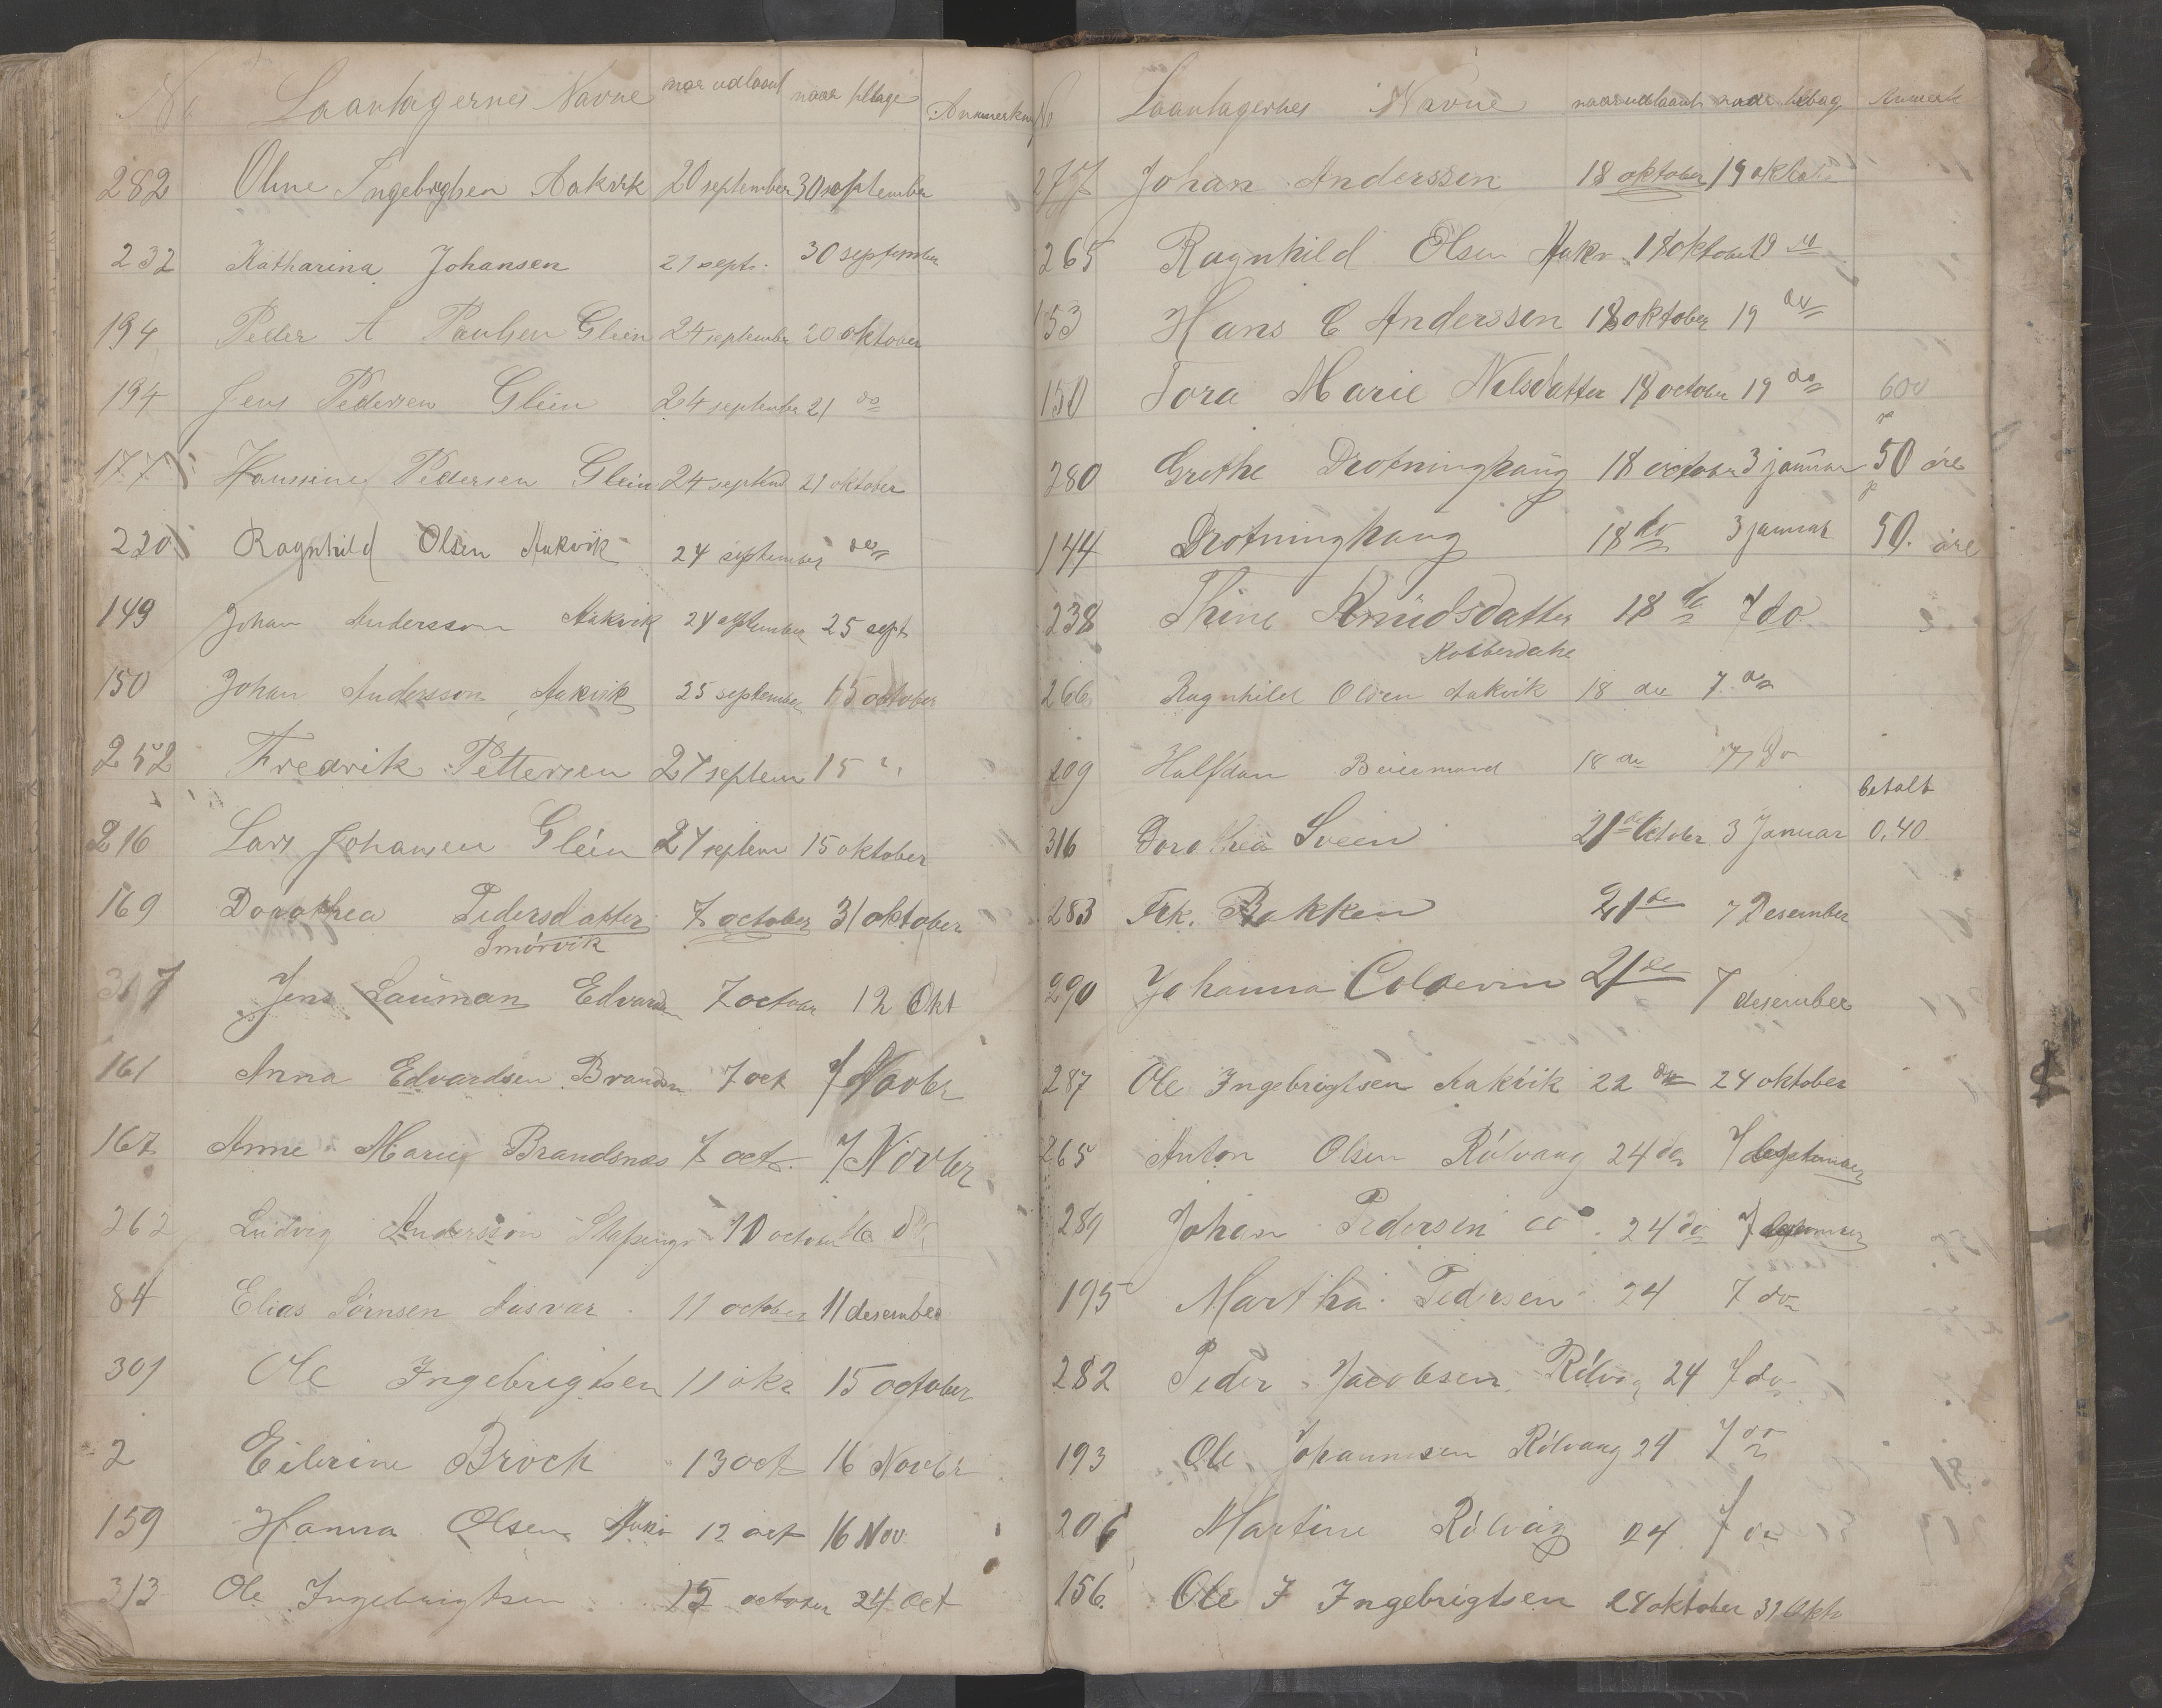 No Laantagernes Navne naar udlaant naar tilbage Anmerkning
282 Oline Ingebrigtsen Aakvik 20 september 30 september
232 Katharina Johansen 21 sept. 30 september
194 Peder A Paulsen Glein 24 september 20 oktober
194 Jens Pedersen Glein 24 september 21 do
177 Hansine Pedersen Glein 24 septbr 21 oktober
220 Ragnhild Olsen Aakvik 24 september do
149 Johan Andersson Aakvik 24 september 25 sept
150 Johan Andersson Aakvik 25 september 15 october
252 Fredrik Pettersen 27 septem 15 "
216 Lars Johansen Glein 27 septem 15 oktober
169 Dorothea Pedersdatter 7 october 31 oktober
Smörvik
317 Jens Lauman Edvardsen 7 october 12 Okt
161 Anna Edvardsen Brandsn 7 oct 7 Novbr
167 Anne Marie Brandsnes 7 oct. 7 Novbr
262 Ludvig Andersson 10 october 16 do
84 Elias Sörnsen Husvær 11 october 11 desember
301 Ole Ingebrigtsen 11 okr 15 october
2 Eibrine Brock 13 oct 16 Novbr
159 Hanna Olsen Aakv 12 oct 16 Nov
313 Ole Ingebrigtsen 15 october 24 Oct
No Laantagernes Navne naar udlaant naar tilbag Anmerk
277 Johan Anderssen 18 oktober 19 oktober
265 Ragnhild Olsen Aakv 18 oktober 19 do
153 Hans C Anderssen 18 oktober 19 do
150 Tora Marie Nilsdatter 18 october 19 do 600
280 Grethe Drotninghaug 18 october 3 januar 50 öre
144 Drotninghaug 18 do 3 januar 50. öre
238 Thine Knudsdatter 18 do 7 do
Kobberdahl
266 Ragnhild Olsen Aakvik 18 do 7 do
209 Halfdan Beiermand 18 do 7 Do
betalt
316 Dorothea Sveen 21 de October 3 Januar 0,40
283 Frk. Bakken 21 de 7 Desember
290 Johanna Colderin 21 de 7 desember
287 Ole Ingebrigtsen Aakvik 22 do 24 oktober
265 Anton Olsen Rölvaag 24 do 7 desember
289 Johan Pedersen do. 24 do 7 desember
195 Martha Pedersen 24 7 do
282 Peder Jacobsen Rölvag 24 7 do
193 Ole Johannesen Rölvaag 24 7 do
206 Martine Rölvaag 24 7 do
156. Ole J Ingebrigtsen 24 oktober 31 Okto